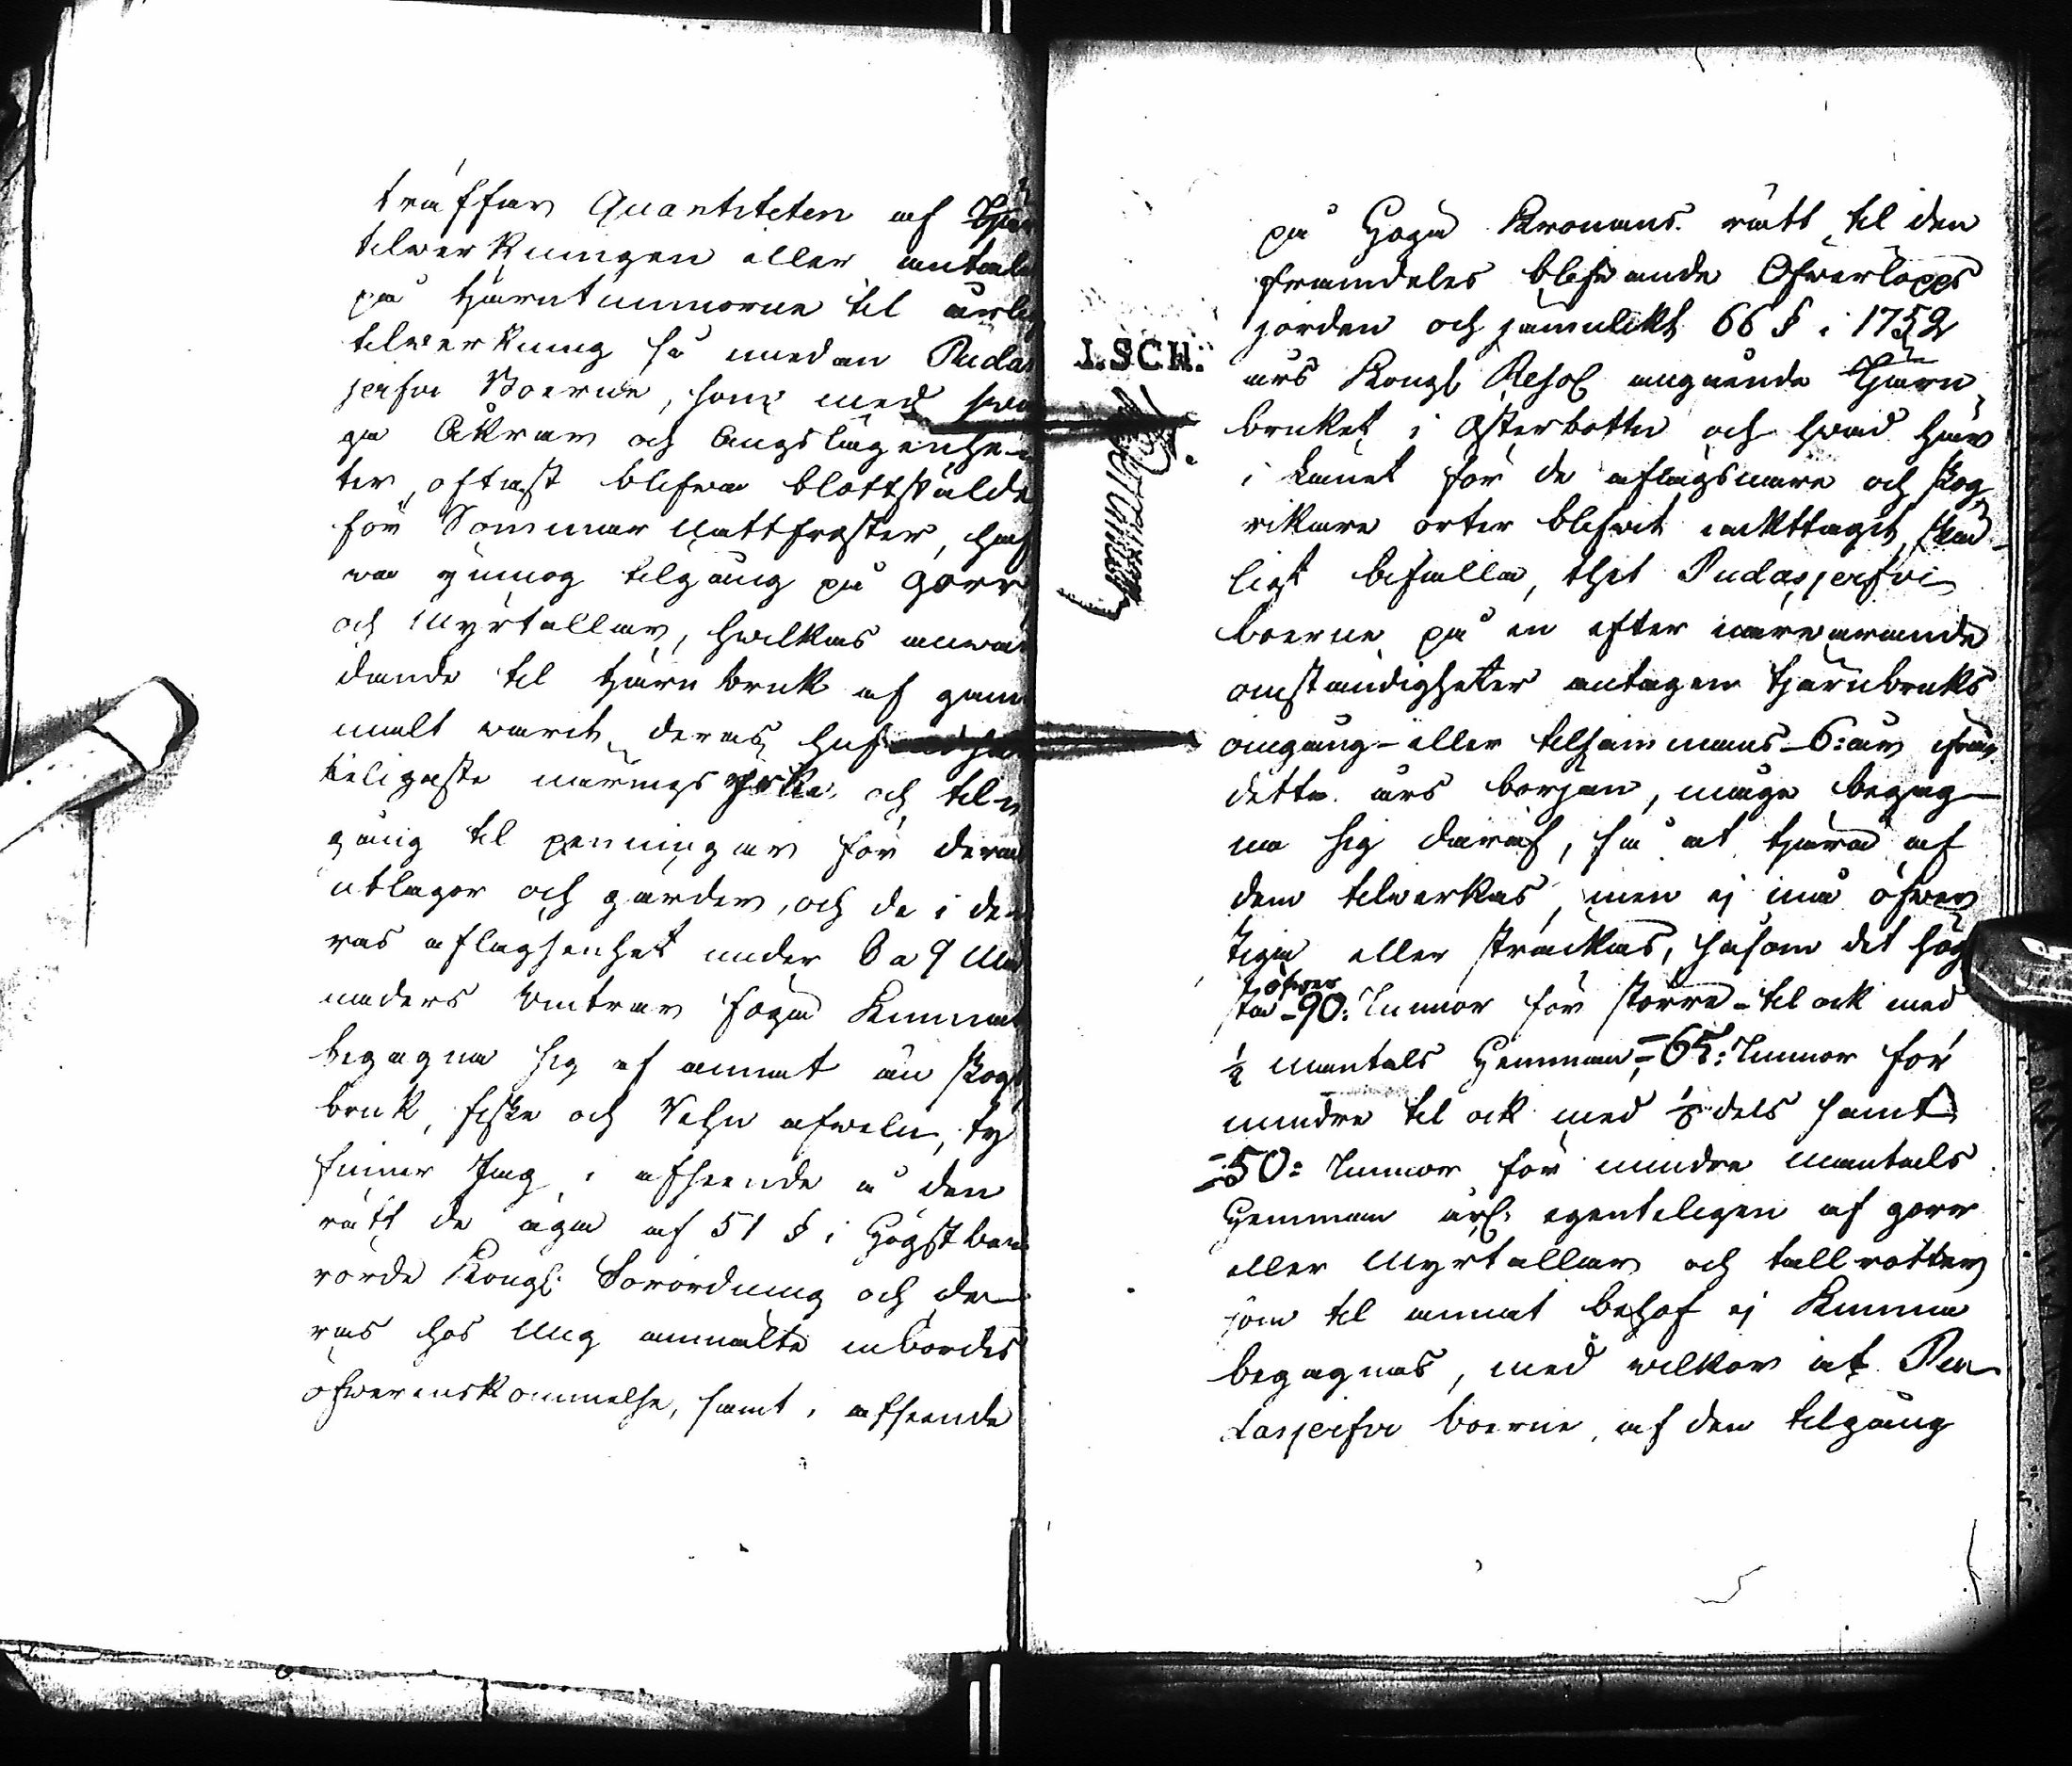 träffar Quantiteten af Tjär
tilwerkningen eller antalet
på tjärutunnorne til årlig
tilwerkning så medan Pudas
jerfvi Boerne, som med swa
ga Åkrar och Ängslägenhe-
ter, oftast blifva blottstälde
för Sommar Nattfroster, haf
va ymnog tilgång på gorr
och Myrtallar, hwilkas anwän
dande til tjärubruk af gam
malt warit deras hufwudsak
keligaste närings yrke och til-
gång til penningar för deras
utlagor och gärder, och de i de
ras aflägsenhet under 6 a 9 Må
naders wintrar föga kunnat
begagna sig af annat än skogs
bruk, fiske och Rehn afwelu, ty
finner Jag, i afseende å den
rätt de äga af 51 § i Högstbem
rörde Kongl. Förordning och de-
ras hos Mig anmälte inbördes
öfwerenskommelse, samt i afseende
på Höga Kronans rätt til den
framdeles blifwande Öfwerlopps
jorden och jämnlikt 66 § i 1752
års Kongl Resol angående Tjäru
bruket i Österbotten och hwad här
i Länet för de aflägsnare och skog
rikare orter blifwit iakttagit, skä
ligt befalla, thet Pudasjerfvi
boerne på en efter närwarande
omständigheter antagen tjärubruks
omgång - eller tilsammans - 6: år ifrån
detta års början, måge begag-
na sig däraf, så at tjära af
dem tilwerkas, men ej må öfwer
stiga eller sträckas, såsom det hög
sta öfwer - 90: Tunnor för större - til ock med
½ mantals Hemman, - 65: Tunnor för
mindre til ock med ⅛ dels samt
- 50: Tunnor för mindre mantals
Hemman årl. egenteligen af gorr
eller Myrtallar och tallrötter
som til annat behof ej kunna
begagnas, med wilkor at Pu-
dasjerfvi boerne, af den tilgång
I.SCH.